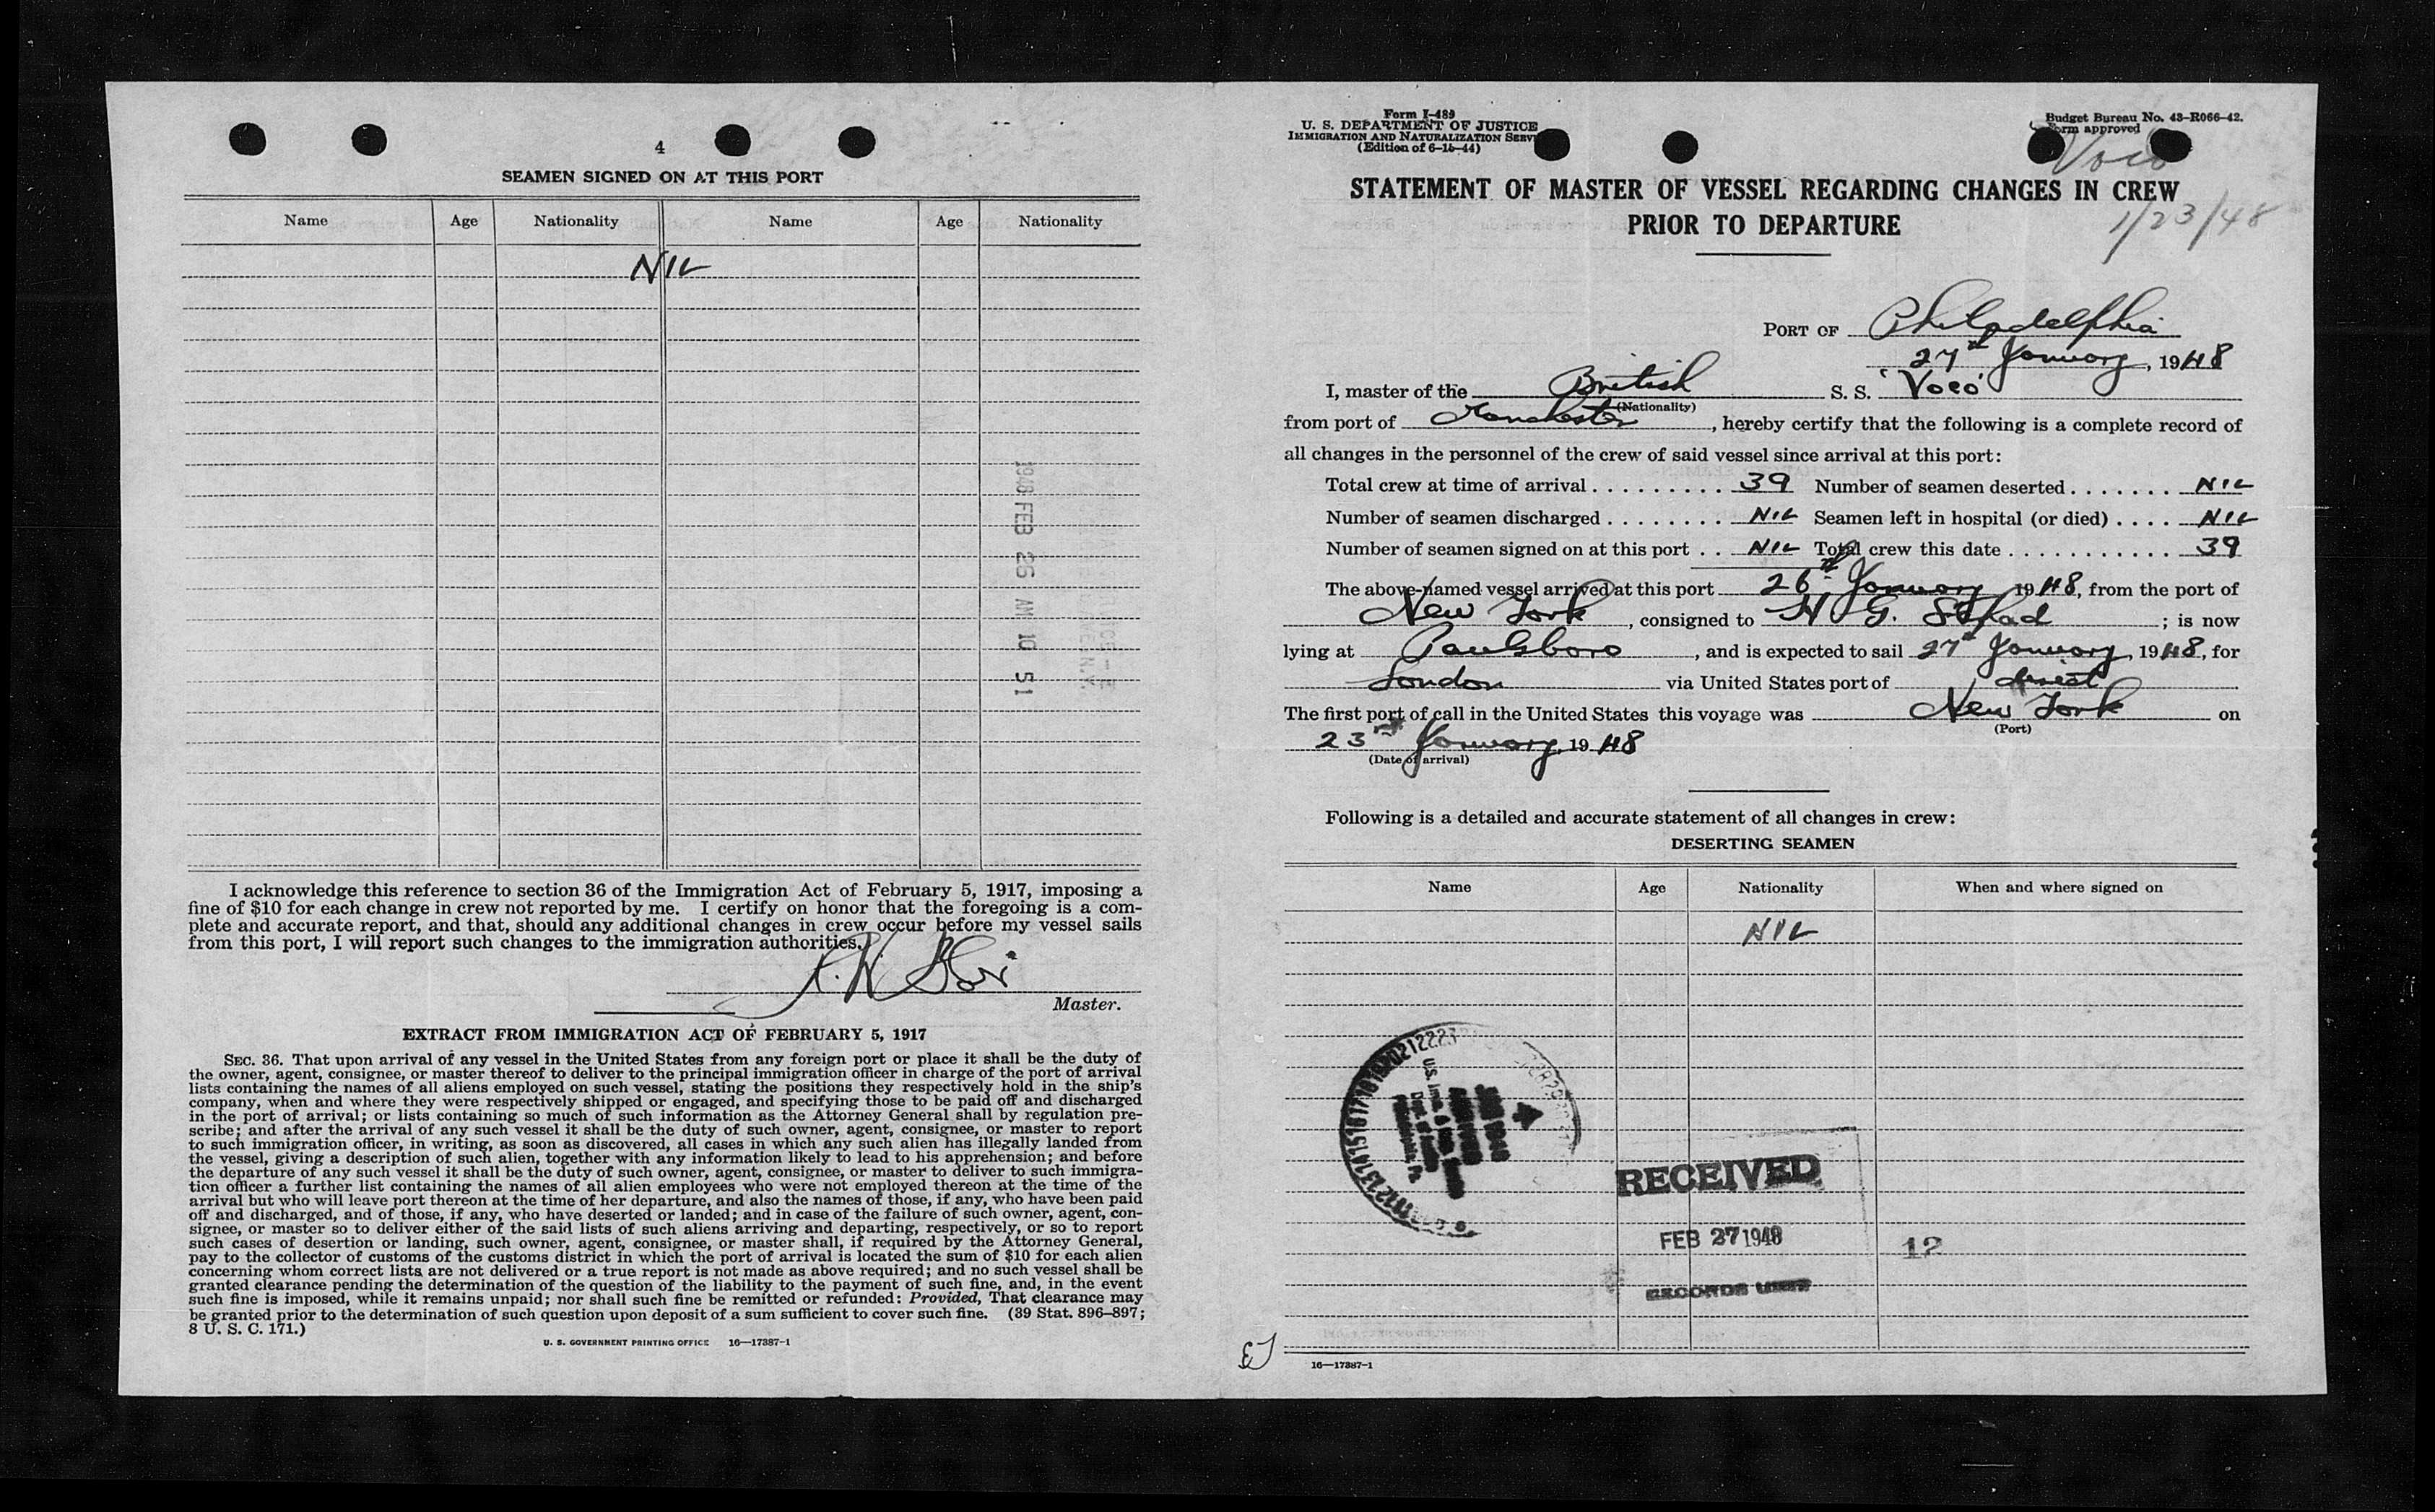 4
SEAMEN SIGNED ON AT THIS PORT
Name Age Nationality Name Age Nationality
NIL
1948 FEB 26 AM 10 51
I acknowledge this reference to section 36 of the Immigration Act of February 5, 1917, imposing a
fine of $10 for each change in crew not reported by me. I certify on honor that the foregoing is a com-
plete and accurate report, and that, should any additional changes in crew occur before my vessel sails
from this port, I will report such changes to the immigration authorities.
Master.
EXTRACT FROM IMMIGRATION ACT OF FEBRUARY 5, 1917
SEC. 36. That upon arrival of any vessel in the United States from any foreign port or place it shall be the duty of
the owner, agent, consignee, or master thereof to deliver to the principal immigration officer in charge of the port of arrival
lists containing the names of all aliens employed on such vessel, stating the positions they respectively hold in the ship's
company, when and where they were respectively shipped or engaged, and specifying those to be paid off and discharged
in the port of arrival; or lists containing so much of such information as the Attorney General shall by regulation pre-
scribe; and after the arrival of any such vessel it shall be the duty of such owner, agent, consignee, or master to report
to such immigration officer, in writing, as soon as discovered, all cases in which any such alien has illegally landed from
the vessel, giving a description of such alien, together with any information likely to lead to his apprehension; and before
the departure of any such vessel it shall be the duty of such owner, agent, consignee, or master to deliver to such immigra-
tion officer a further list containing the names of all alien employees who were not employed thereon at the time of the
arrival but who will leave port thereon at the time of her departure, and also the names of those, if any, who have been paid
off and discharged, and of those, if any, who have deserted or landed; and in case of the failure of such owner, agent, con-
signee, or master so to deliver either of the said lists of such aliens arriving and departing, respectively, or so to report
such cases of desertion or landing, such owner, agent, consignee, or master shall, if required by the Attorney General,
pay to the collector of customs of the customs district in which the port of arrival is located the sum of $10 for each alien
concerning whom correct lists are not delivered or a true report is not made as above required; and no such vessel shall be
granted clearance pending the determination of the question of the liability to the payment of such fine, and, in the event
such fine is imposed, while it remains unpaid; nor shall such fine be remitted or refunded: Provided, That clearance may
be granted prior to the determination of such question upon deposit of a sum sufficient to cover such fine. (39 Stat. 896–897;
8 U. S. C. 171.)
U. S. GOVERNMENT PRINTING OFFICE 16—17387-1
Form I-489
U. S. DEPARTMENT OF JUSTICE
IMMIGRATION AND NATURALIZATION SERV
(Edition of 6-15-44)
Budget Bureau No. 43-R066-42.
Form approved
Voco
1/23/48
STATEMENT OF MASTER OF VESSEL REGARDING CHANGES IN CREW
PRIOR TO DEPARTURE
PORT OF Philadelphia
27th January, 1948
I, master of the British S. S. 'Voco'
(Nationality)
from port of Manchester, hereby certify that the following is a complete record of
all changes in the personnel of the crew of said vessel since arrival at this port:
Total crew at time of arrival . . . . . . . . . 39 Number of seamen deserted . . . . . . . NIL
Number of seamen discharged . . . . . . . . NIL Seamen left in hospital (or died) . . . . NIL
Number of seamen signed on at this port . . NIL Total crew this date . . . . . . . . . . . . 39
The above-named vessel arrived at this port 26th January 1948, from the port of
New York, consigned to H G. ; is now
lying at Paulsboro, and is expected to sail 27th January, 1948, for
London via United States port of direct
The first port of call in the United States this voyage was New York on
(Port)
23rd January, 1948
(Date of arrival)
Following is a detailed and accurate statement of all changes in crew:
DESERTING SEAMEN
Name Age Nationality When and where signed on
NIL
RECEIVED
FEB 27 1948
12
RECORDS UNIT
16—17387-1